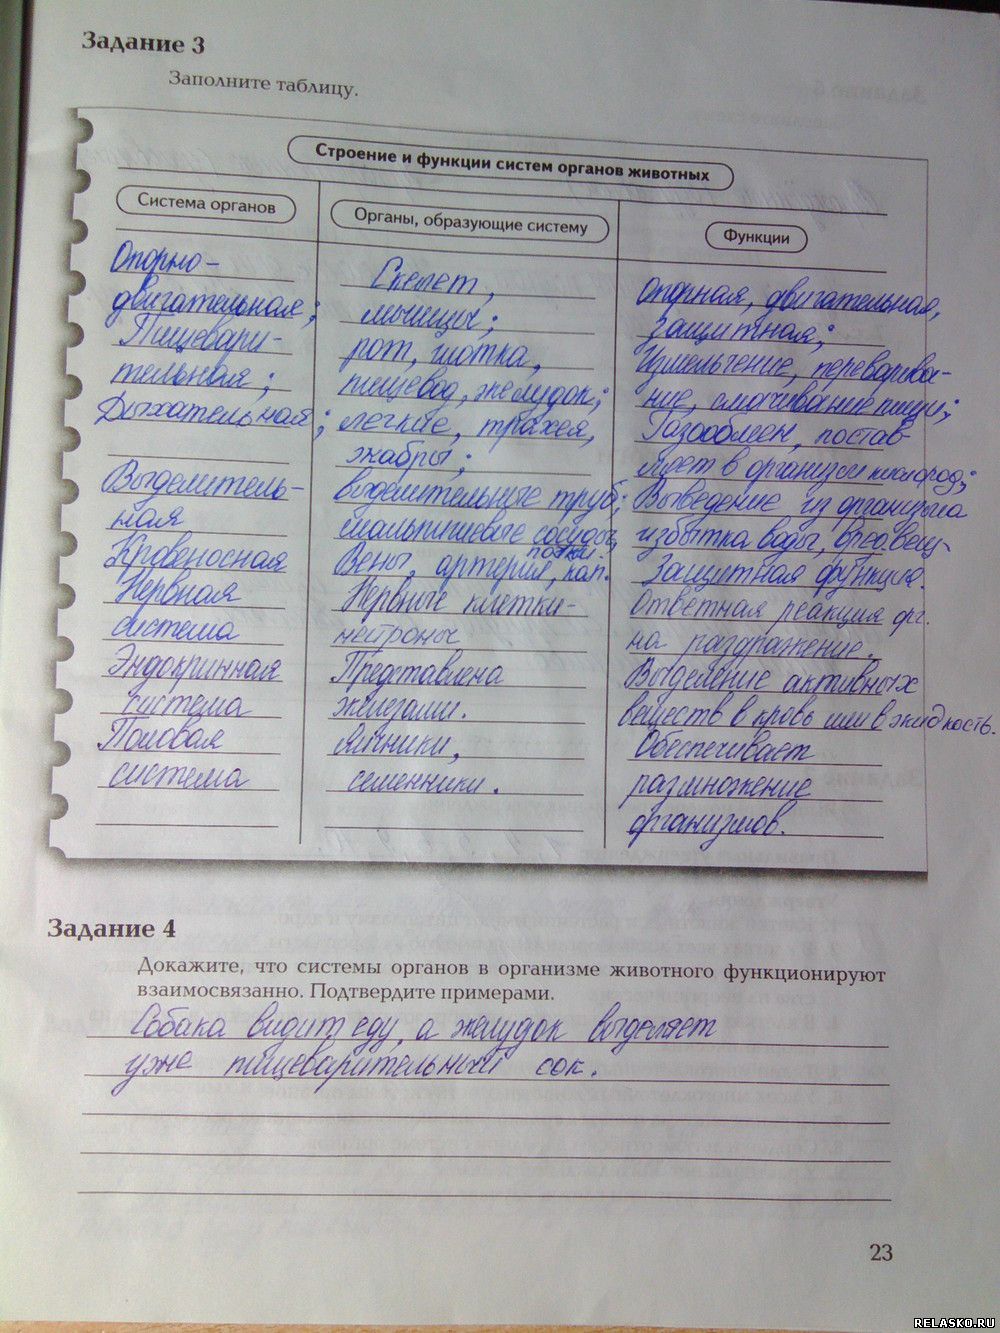 Задание 3
Заполните таблицу.
Строение и функции систем органов животных
Система органов
Органы, образующие систему
Функции
Опорно-
двигательная;
Скелет,
мышцы;
опорная, двигательная,
защитная;
Пищевари-
тельная;
рот, глотка,
пищевод, желудок;
Измельчение, перевари-
ние, смачивание пищи;
Дыхательная;
легкие, трахея,
жабры;
Газообмен, постав-
ляет в организм кислород;
Выделитель-
ная
выделительные труб;
мальпигиевые сосуды,
почки.
Выведение из организма
избытка воды,
Кровеносная
Вены, артерия, кап.
Защитная функция.
Нервная
система
Нервные клетки-
нейроны
Ответная реакция орг.
на раздражение.
Эндокринная
система
Представлена
железами.
Выделение активных
веществ в кровь или в жидкость.
Половая
система
Яичники,
семенники.
Обеспечивает
размножение
организмов.
Задание 4
Докажите, что системы органов в организме животного функционируют
взаимосвязанно. Подтвердите примерами.
Собака видит еду, а желудок выделяет
уже пищеварительный сок.
23
RELASKO.RU